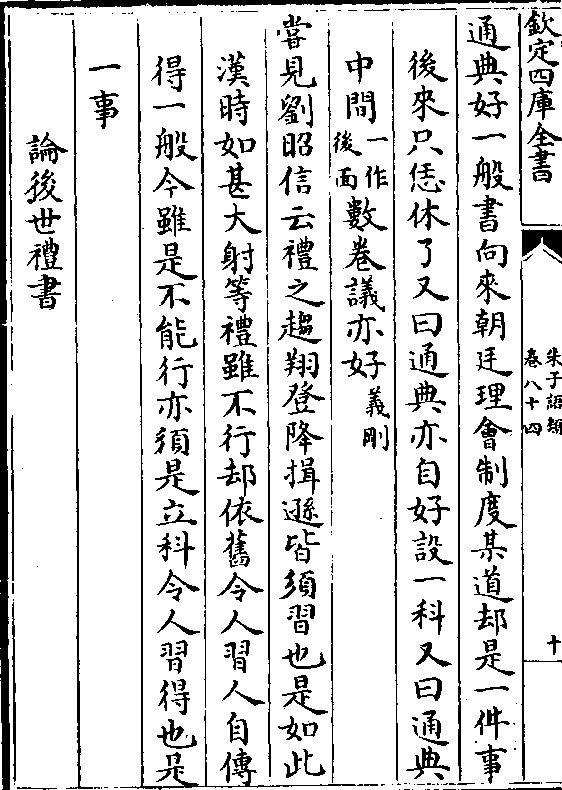 欽定四庫全書
朱子語類
卷八十四
十
通典好一般書向來朝廷理會制度某道却是一件事
後來只恁休了又曰通典亦自好設一科又曰通典
中間一作後面數卷議亦好義剛
嘗見劉昭信云禮之趨翔登降揖遜皆須習也是如此
漢時如甚大射等禮雖不行却依舊令人習人自傳
得一般今雖是不能行亦須是立科令人習得也是
一事
論後世禮書